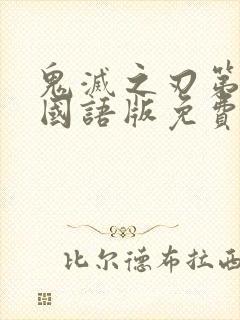 鬼滅之刃第
國語版免費
比尔德布拉西